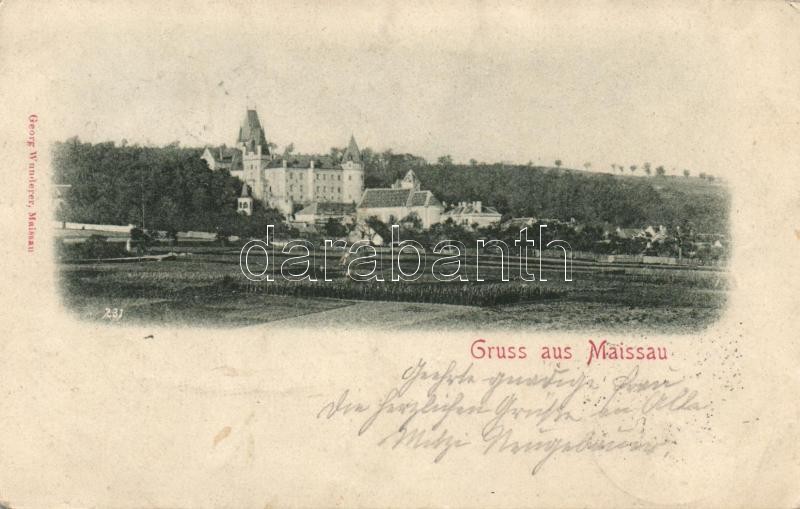 Georg Wunderer, Maissau
darabanth
231
Gruss aus Maissau
Geehrte gnädige Frau
Die herzlichen Grüsse an Alle
Mitzi Neugebauer